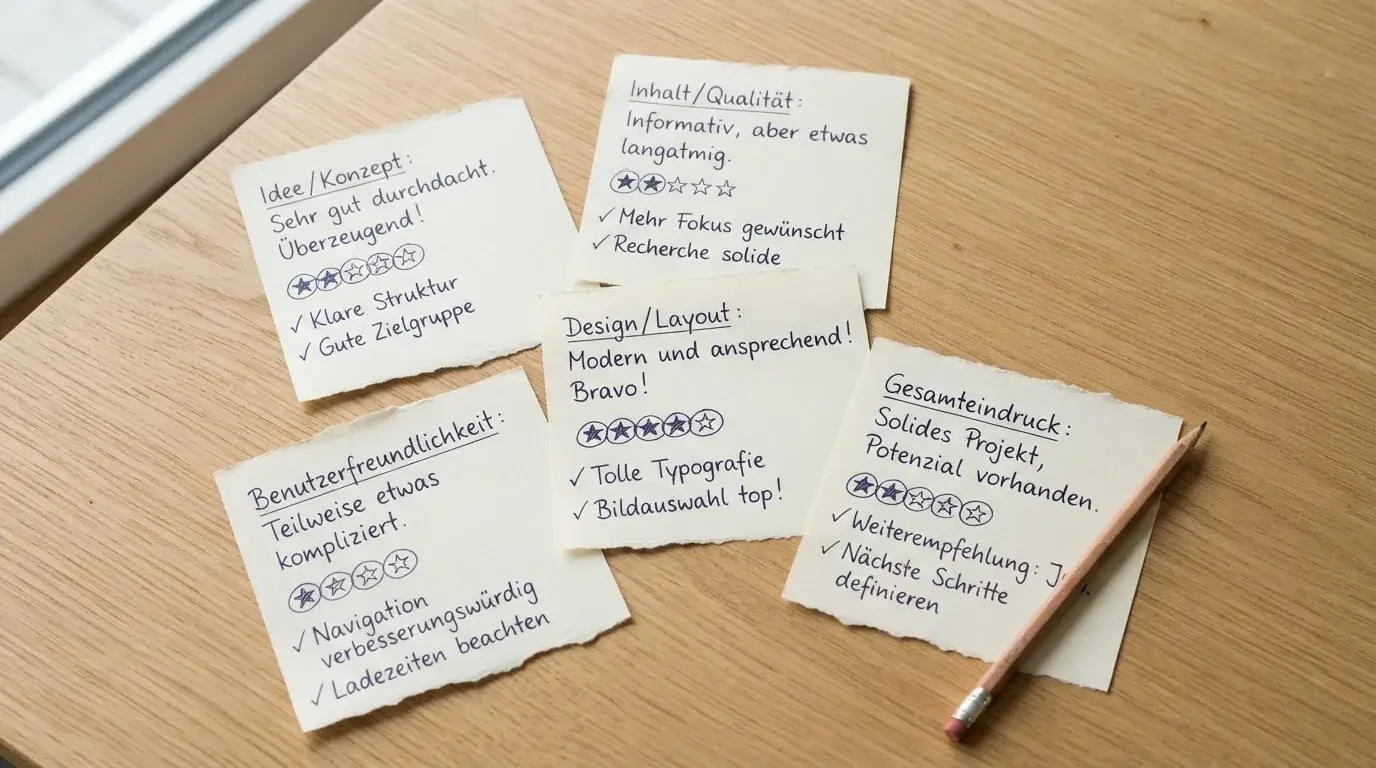 Idee/Konzept:
Sehr gut durchdacht.
Überzeugend!
✓ Klare Struktur
✓ Gute Zielgruppe
Inhalt/Qualität:
Informativ, aber etwas
langatmig.
✓ Mehr Fokus gewünscht
✓ Recherche solide
Design/Layout:
Modern und ansprechend!
Bravo!
✓ Tolle Typografie
✓ Bildauswahl top!
Benutzerfreundlichkeit:
Teilweise etwas
kompliziert.
✓ Navigation
verbesserungswürdig
✓ Ladezeiten beachten
Gesamteindruck:
Solides Projekt,
Potenzial vorhanden.
✓ Weiterempfehlung:
✓ Nächste Schritte
definieren